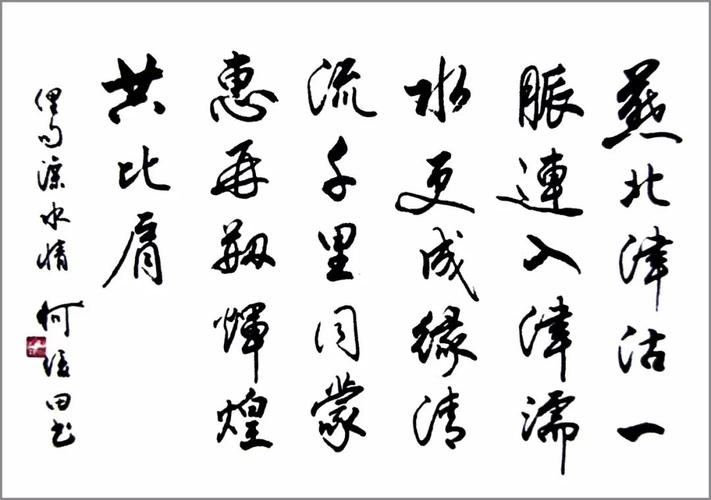 燕北津沽一
脈連入津濡
水更成緣清
流千里同蒙
惠再刱輝煌
共比肩
俚句滦水情 何田书